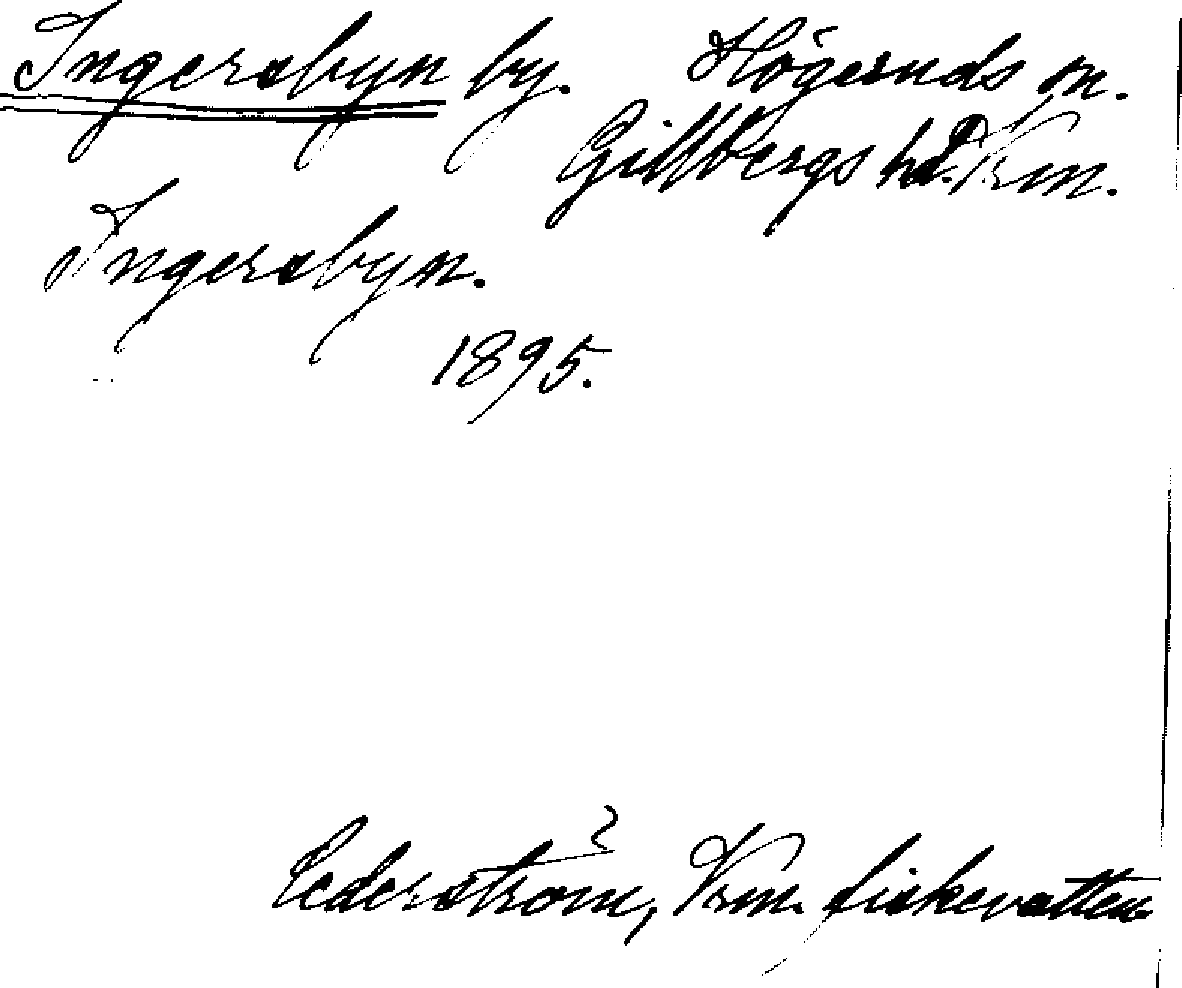 Ingersbyn by. Högeruds sn.
Gillbergs hd. Vrm.
Ingersbyn.
1895.
Cederström, Vrm. fiskevatten